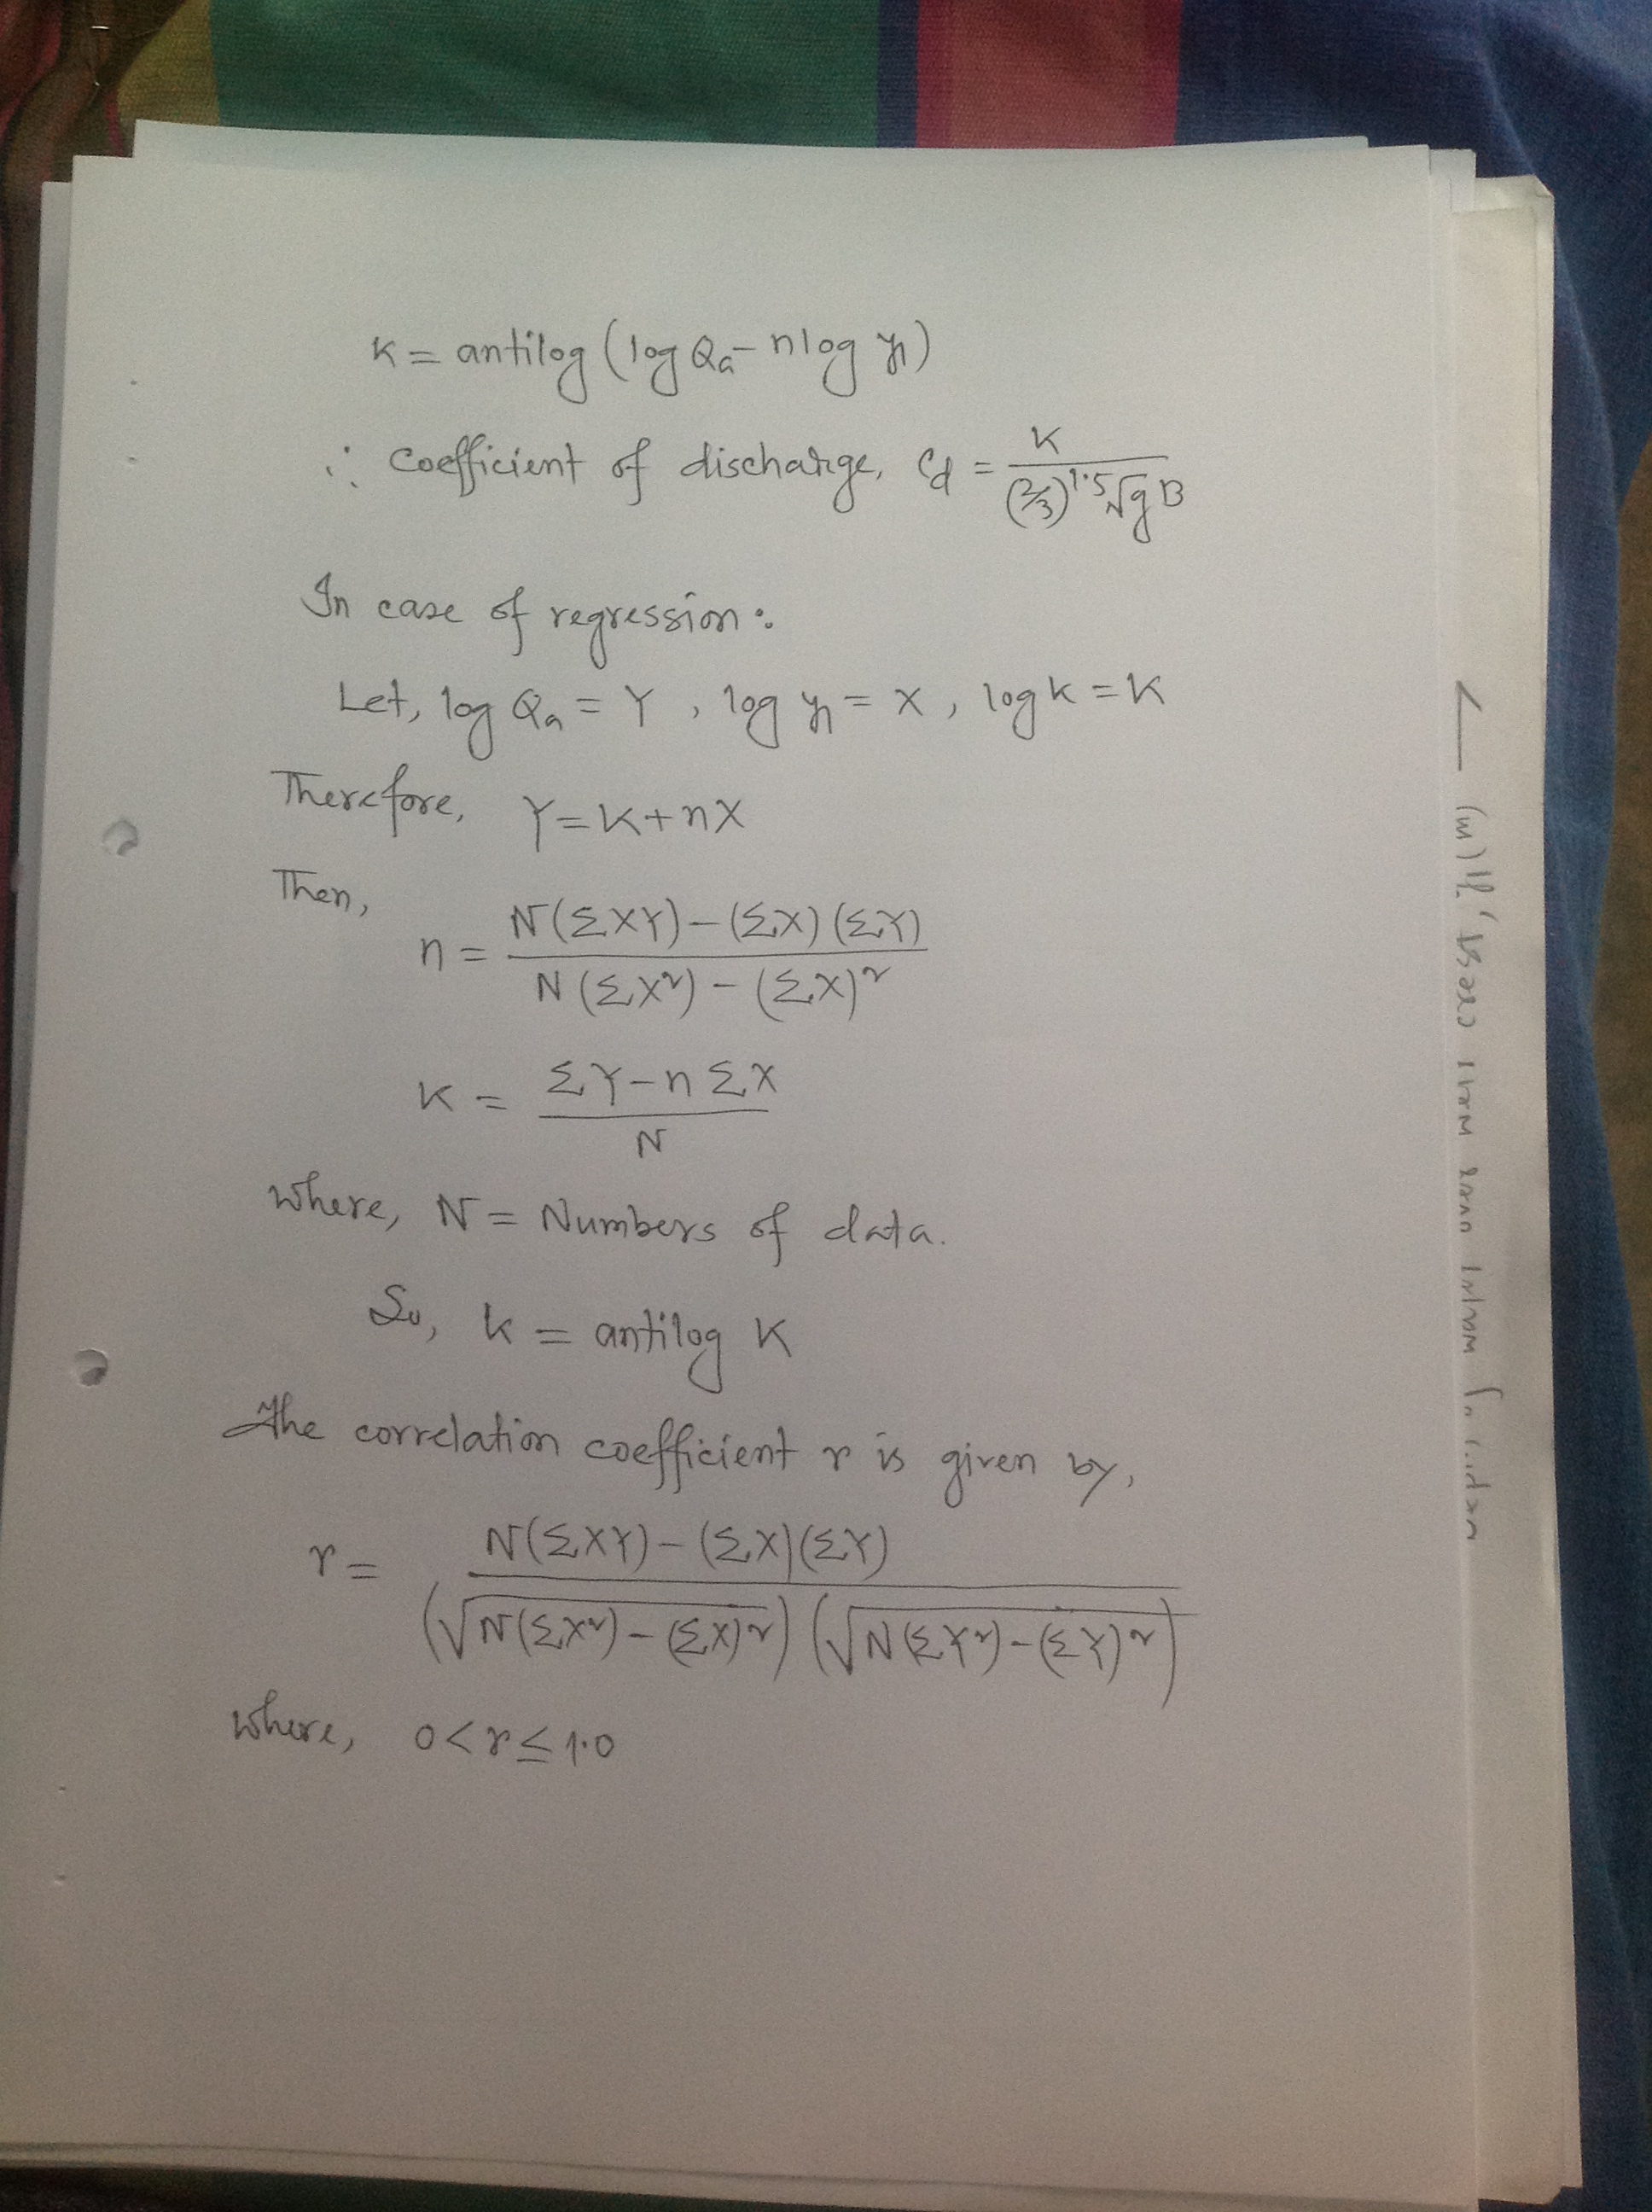 K = antilog (log Qa - n log y1)
∴ Coefficient of discharge, Cd = K / ((2/3)^1.5 √g B)
In case of regression:
Let, log Qa = Y, log y1 = X, log k = K
Therefore, Y = K + nX
Then,
n = (N(ΣXY) - (ΣX)(ΣY)) / (N(ΣX²) - (ΣX)²)
K = (ΣY - nΣX) / N
where, N = Numbers of data.
So, k = antilog K
The correlation coefficient r is given by,
r = (N(ΣXY) - (ΣX)(ΣY)) / ((√N(ΣX²) - (ΣX)²) (√N(ΣY²) - (ΣY)²))
where, 0 < r ≤ 1.0